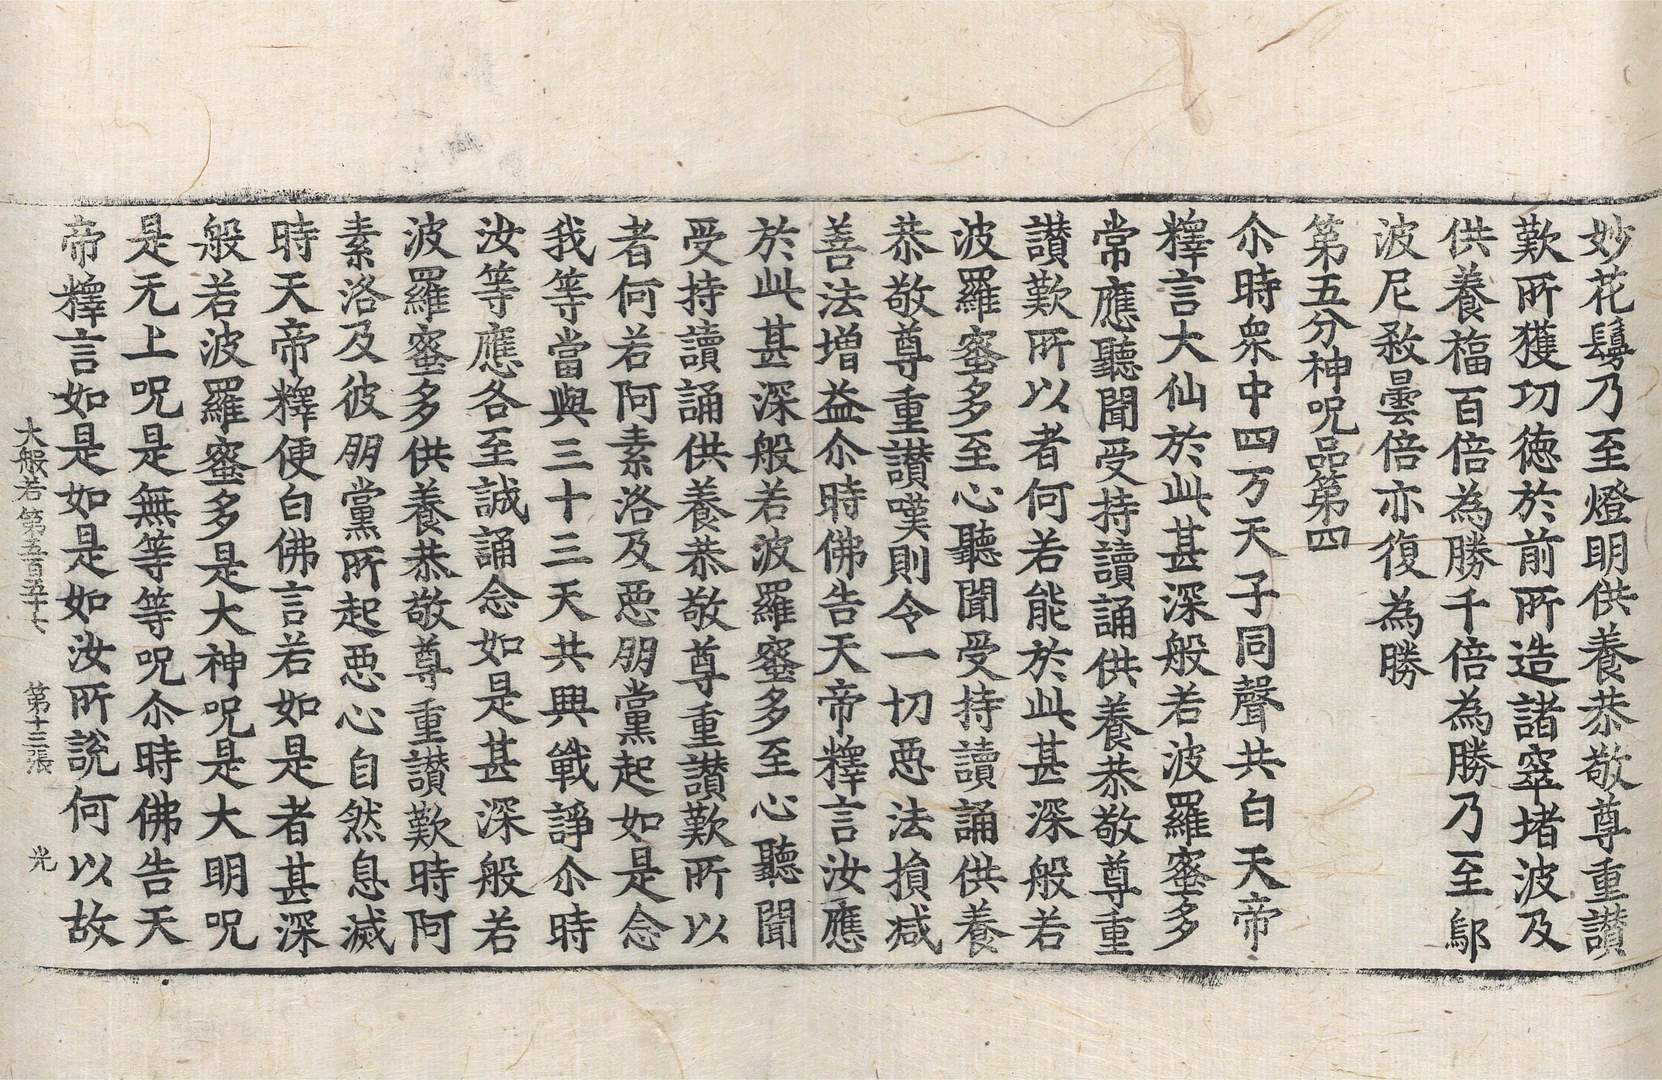 妙花鬘乃至燈明供養恭敬尊重讃
歎所獲功徳於前所造諸窣堵波及
供養福百倍為勝千倍為勝乃至鄔
波尼煞曇倍亦復為勝
第五分神呪品第四
尒時衆中四万天子同聲共白天帝
釋言大仙於此甚深般若波羅蜜多
常應聽聞受持讀誦供養恭敬尊重
讃歎所以者何若能於此甚深般若
波羅蜜多至心聽聞受持讀誦供養
恭敬尊重讃嘆則令一切惡法損減
善法增益尒時佛告天帝釋言汝應
於此甚深般若波羅蜜多至心聽聞
受持讀誦供養恭敬尊重讃歎所以
者何若阿素洛及惡朋黨起如是念
我等當與三十三天共興戰諍尒時
汝等應各至誠誦念如是甚深般若
波羅蜜多供養恭敬尊重讃歎時阿
素洛及彼朋黨所起惡心自然息滅
時天帝釋便白佛言若如是者甚深
般若波羅蜜多是大神呪是大明呪
是无上呪是無等等呪尒時佛告天
帝釋言如是如是如汝所說何以故
大般若第五百五十七　第十三張　光